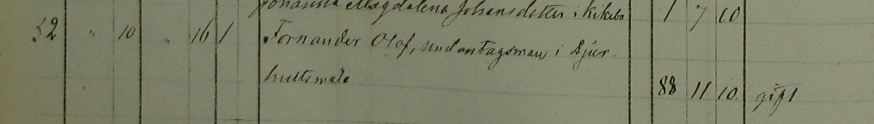 Johanna Magdalena Johansdotter i Kikebo 1 7 10
52 " 10 " 16 1 Fornander Olof, undantagsman i Djur-
hultsmåla 88 11 10 gift